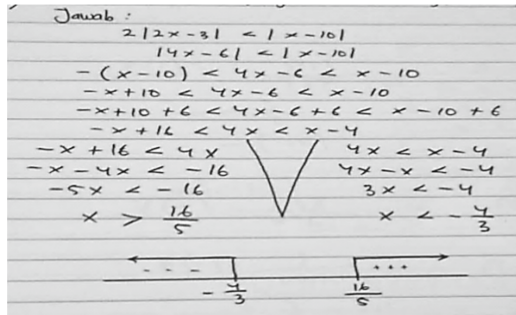 Jawab :
2|2x-3| < |x-10|
|4x-6| < |x-10|
-(x-10) < 4x-6 < x-10
-x+10 < 4x-6 < x-10
-x+10+6 < 4x-6+6 < x-10+6
-x+16 < 4x < x-4
-x+16 < 4x 4x < x-4
-x-4x < -16 4x-x < -4
-5x < -16 3x < -4
x > 16/5 x < -4/3
- - - •••
-4/3 16/5